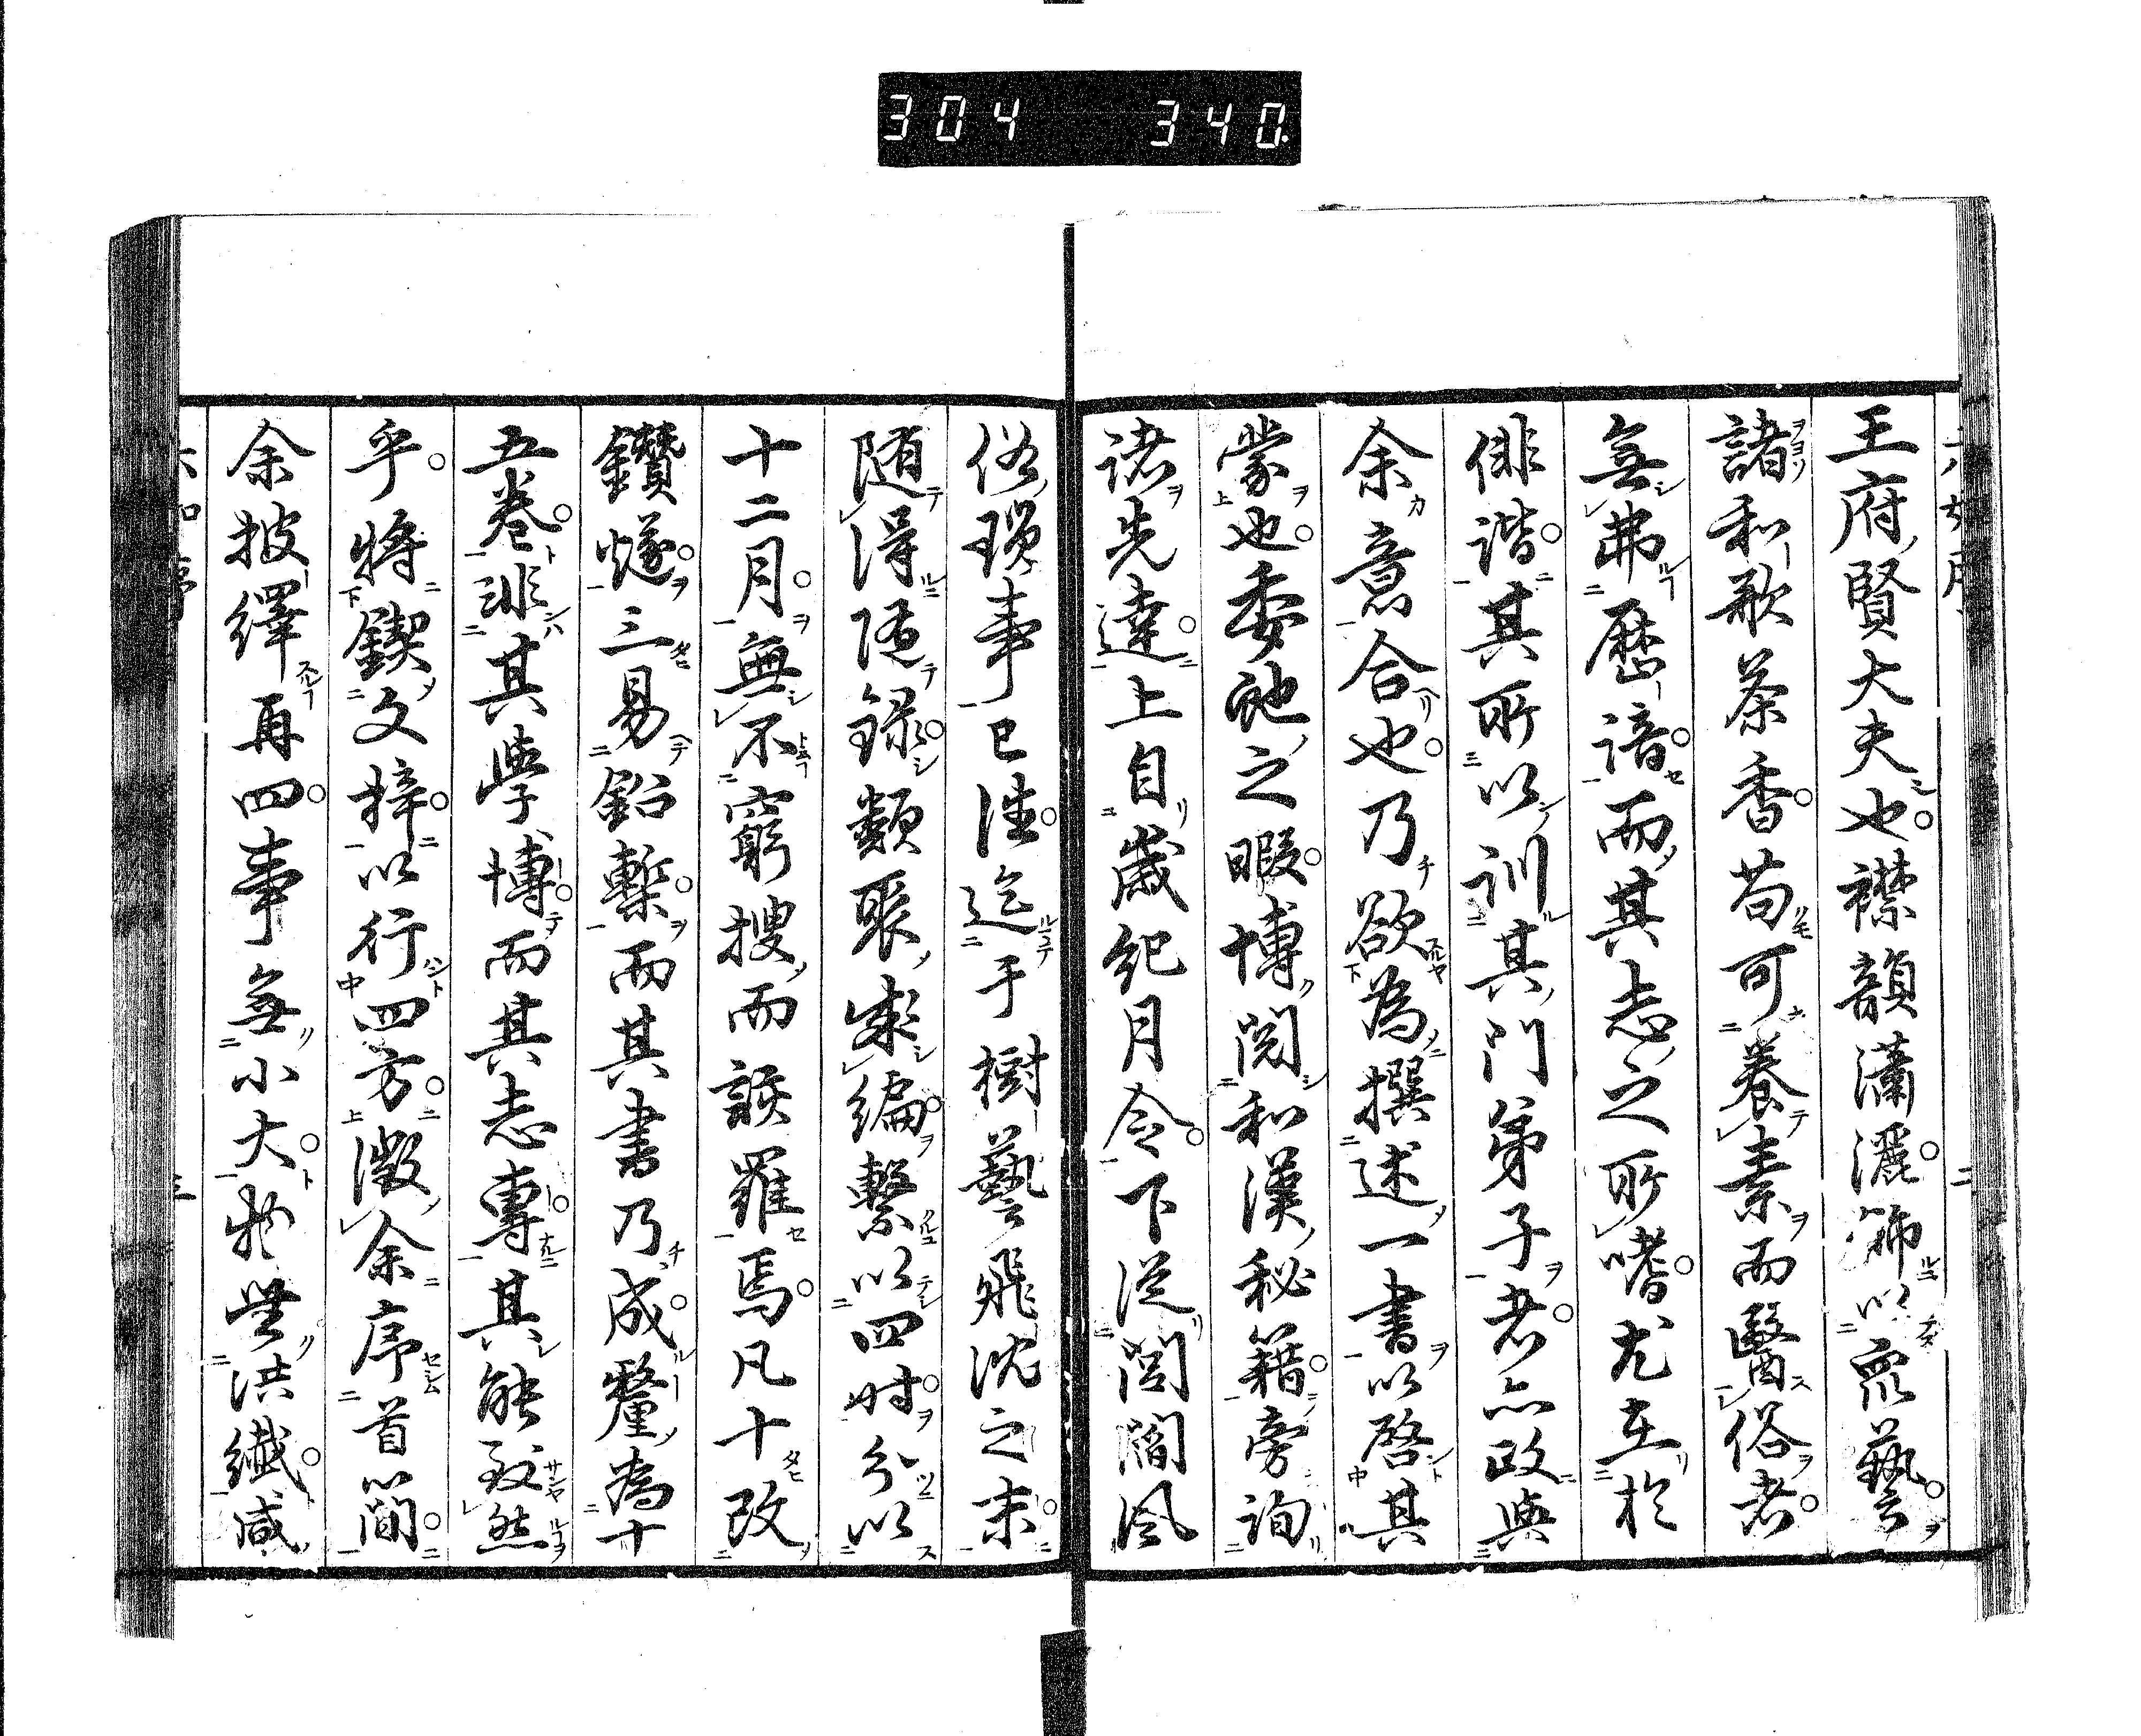 304 340
王府賢大夫也襟韻瀟灑施以眾藝
諸和歌茶香苟可養素而醫俗者
無弗歷諳而其志之所嗜尤在於
俳諧其所以訓其門弟子者亦政與
余意合也乃欲為撰述一書以啓其
蒙也委虵之暇博閱和漢秘籍旁詢
諸先達上自歲紀月令下逮閭閻風
俗瑣事已往迄于樹藝飛沈之末
随得随録類聚成編繫以四時分以
十二月無不窮搜而該羅焉凡十改
鑽燧三易鉛槧而其書乃成釐為十
五卷非其學博而其志專其能致然
乎將鍥文梓以行四方徵余序首簡
余披繹再四事無小大物無洪纖咸
二
三